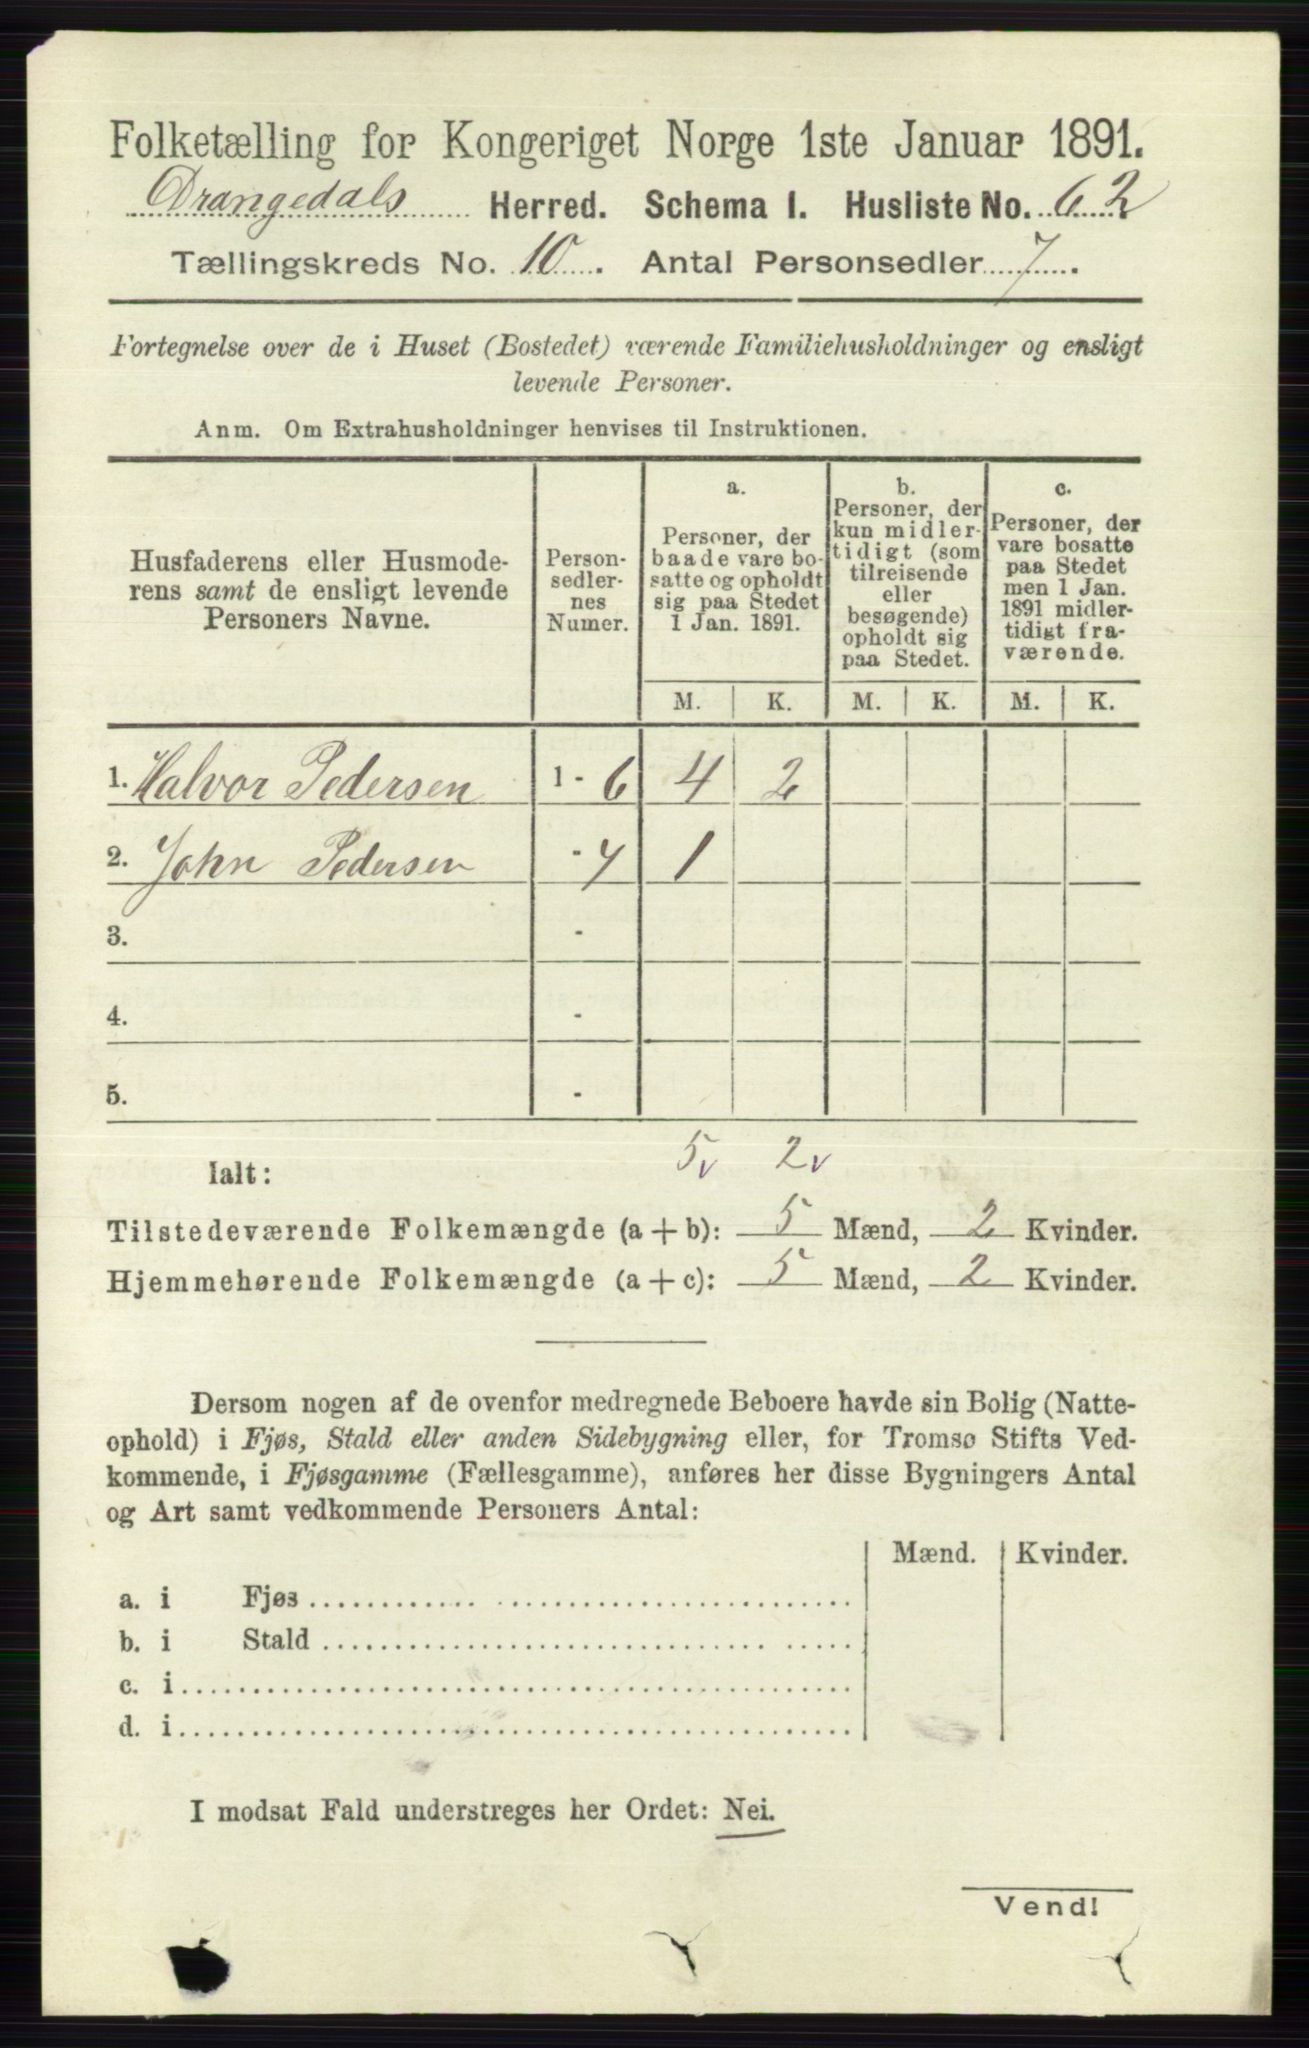 Folketælling for Kongeriget Norge 1ste Januar 1891.
Drangedals Herred. Schema I. Husliste No. 62
Tællingskreds No. 10. Antal Personsedler 7.
Fortegnelse over de i Huset (Bostedet) værende Familiehusholdninger og ensligt
levende Personer.
Anm. Om Extrahusholdninger henvises til Instruktionen.
Husfaderens eller Husmode-
rens samt de ensligt levende
Personers Navne.
Person-
sedler-
nes
Numer.
a.
Personer, der
baade vare bo-
satte og opholdt
sig paa Stedet
1 Jan. 1891.
b.
Personer, der
kun midler-
tidigt (som
tilreisende
eller
besøgende)
opholdt sig
paa Stedet.
c.
Personer, der
vare bosatte
paa Stedet
men 1 Jan.
1891 midler-
tidigt fra-
værende.
M. K. M. K. M. K.
1. Halvor Pedersen 1 - 6 4 2
2. John Pedersen - 7 1
3. -
4. -
5. -
Ialt: 5 v 2 v
Tilstedeværende Folkemængde (a + b): 5 Mænd, 2 Kvinder.
Hjemmehørende Folkemængde (a + c): 5 Mænd, 2 Kvinder.
Dersom nogen af de ovenfor medregnede Beboere havde sin Bolig (Natte-
ophold) i Fjøs, Stald eller anden Sidebygning eller, for Tromsø Stifts Ved-
kommende, i Fjøsgamme (Fællesgamme), anføres her disse Bygningers Antal
og Art samt vedkommende Personers Antal:
Mænd. Kvinder.
a. i Fjøs
b. i Stald
c. i
d. i
I modsat Fald understreges her Ordet: Nei.
Vend!